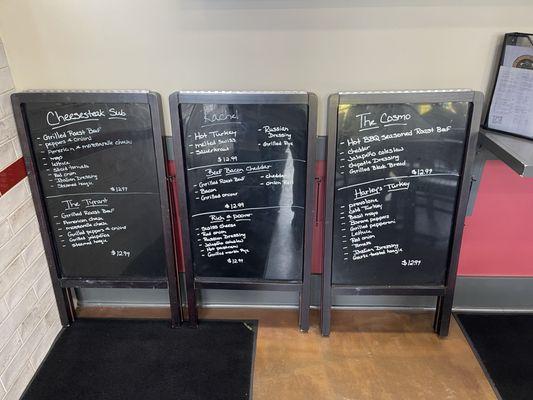 Cheesesteak Sub
Grilled Roast Beef
peppers & onions
American & mozzarella cheese
mayo
sliced tomato
Red onion
Italian Dressing
Steamed Hoagie
$12.99
The Tyrant
Grilled Roast Beef
American cheese
mozzarella cheese
Grilled peppers & onions
Grilled jalapeños
steamed hoagie
$12.99
Rachel
Hot Turkey
melted Swiss
Sauerkraut
Russian
Dressing
Grilled Rye
$12.99
Beef Bacon Cheddar
Grilled Roast Beef
Bacon
cheddar
onion Roll
$12.99
Swiss cheese
Red onion
Russian Dressing
Jalapeño coleslaw
Hot pastrami
Grilled marble Rye
$12.99
The Cosmo
Hot BBQ seasoned Roast Beef
Cheddar
Jalapeño coleslaw
Chipotle Dressing
Grilled Black Bread
$12.99
Harley's Turkey
provolone
Cold Turkey
Basil mayo
Banana peppers
Grilled pepperoni
Lettuce
Red onion
Tomato
Italian Dressing
$12.99